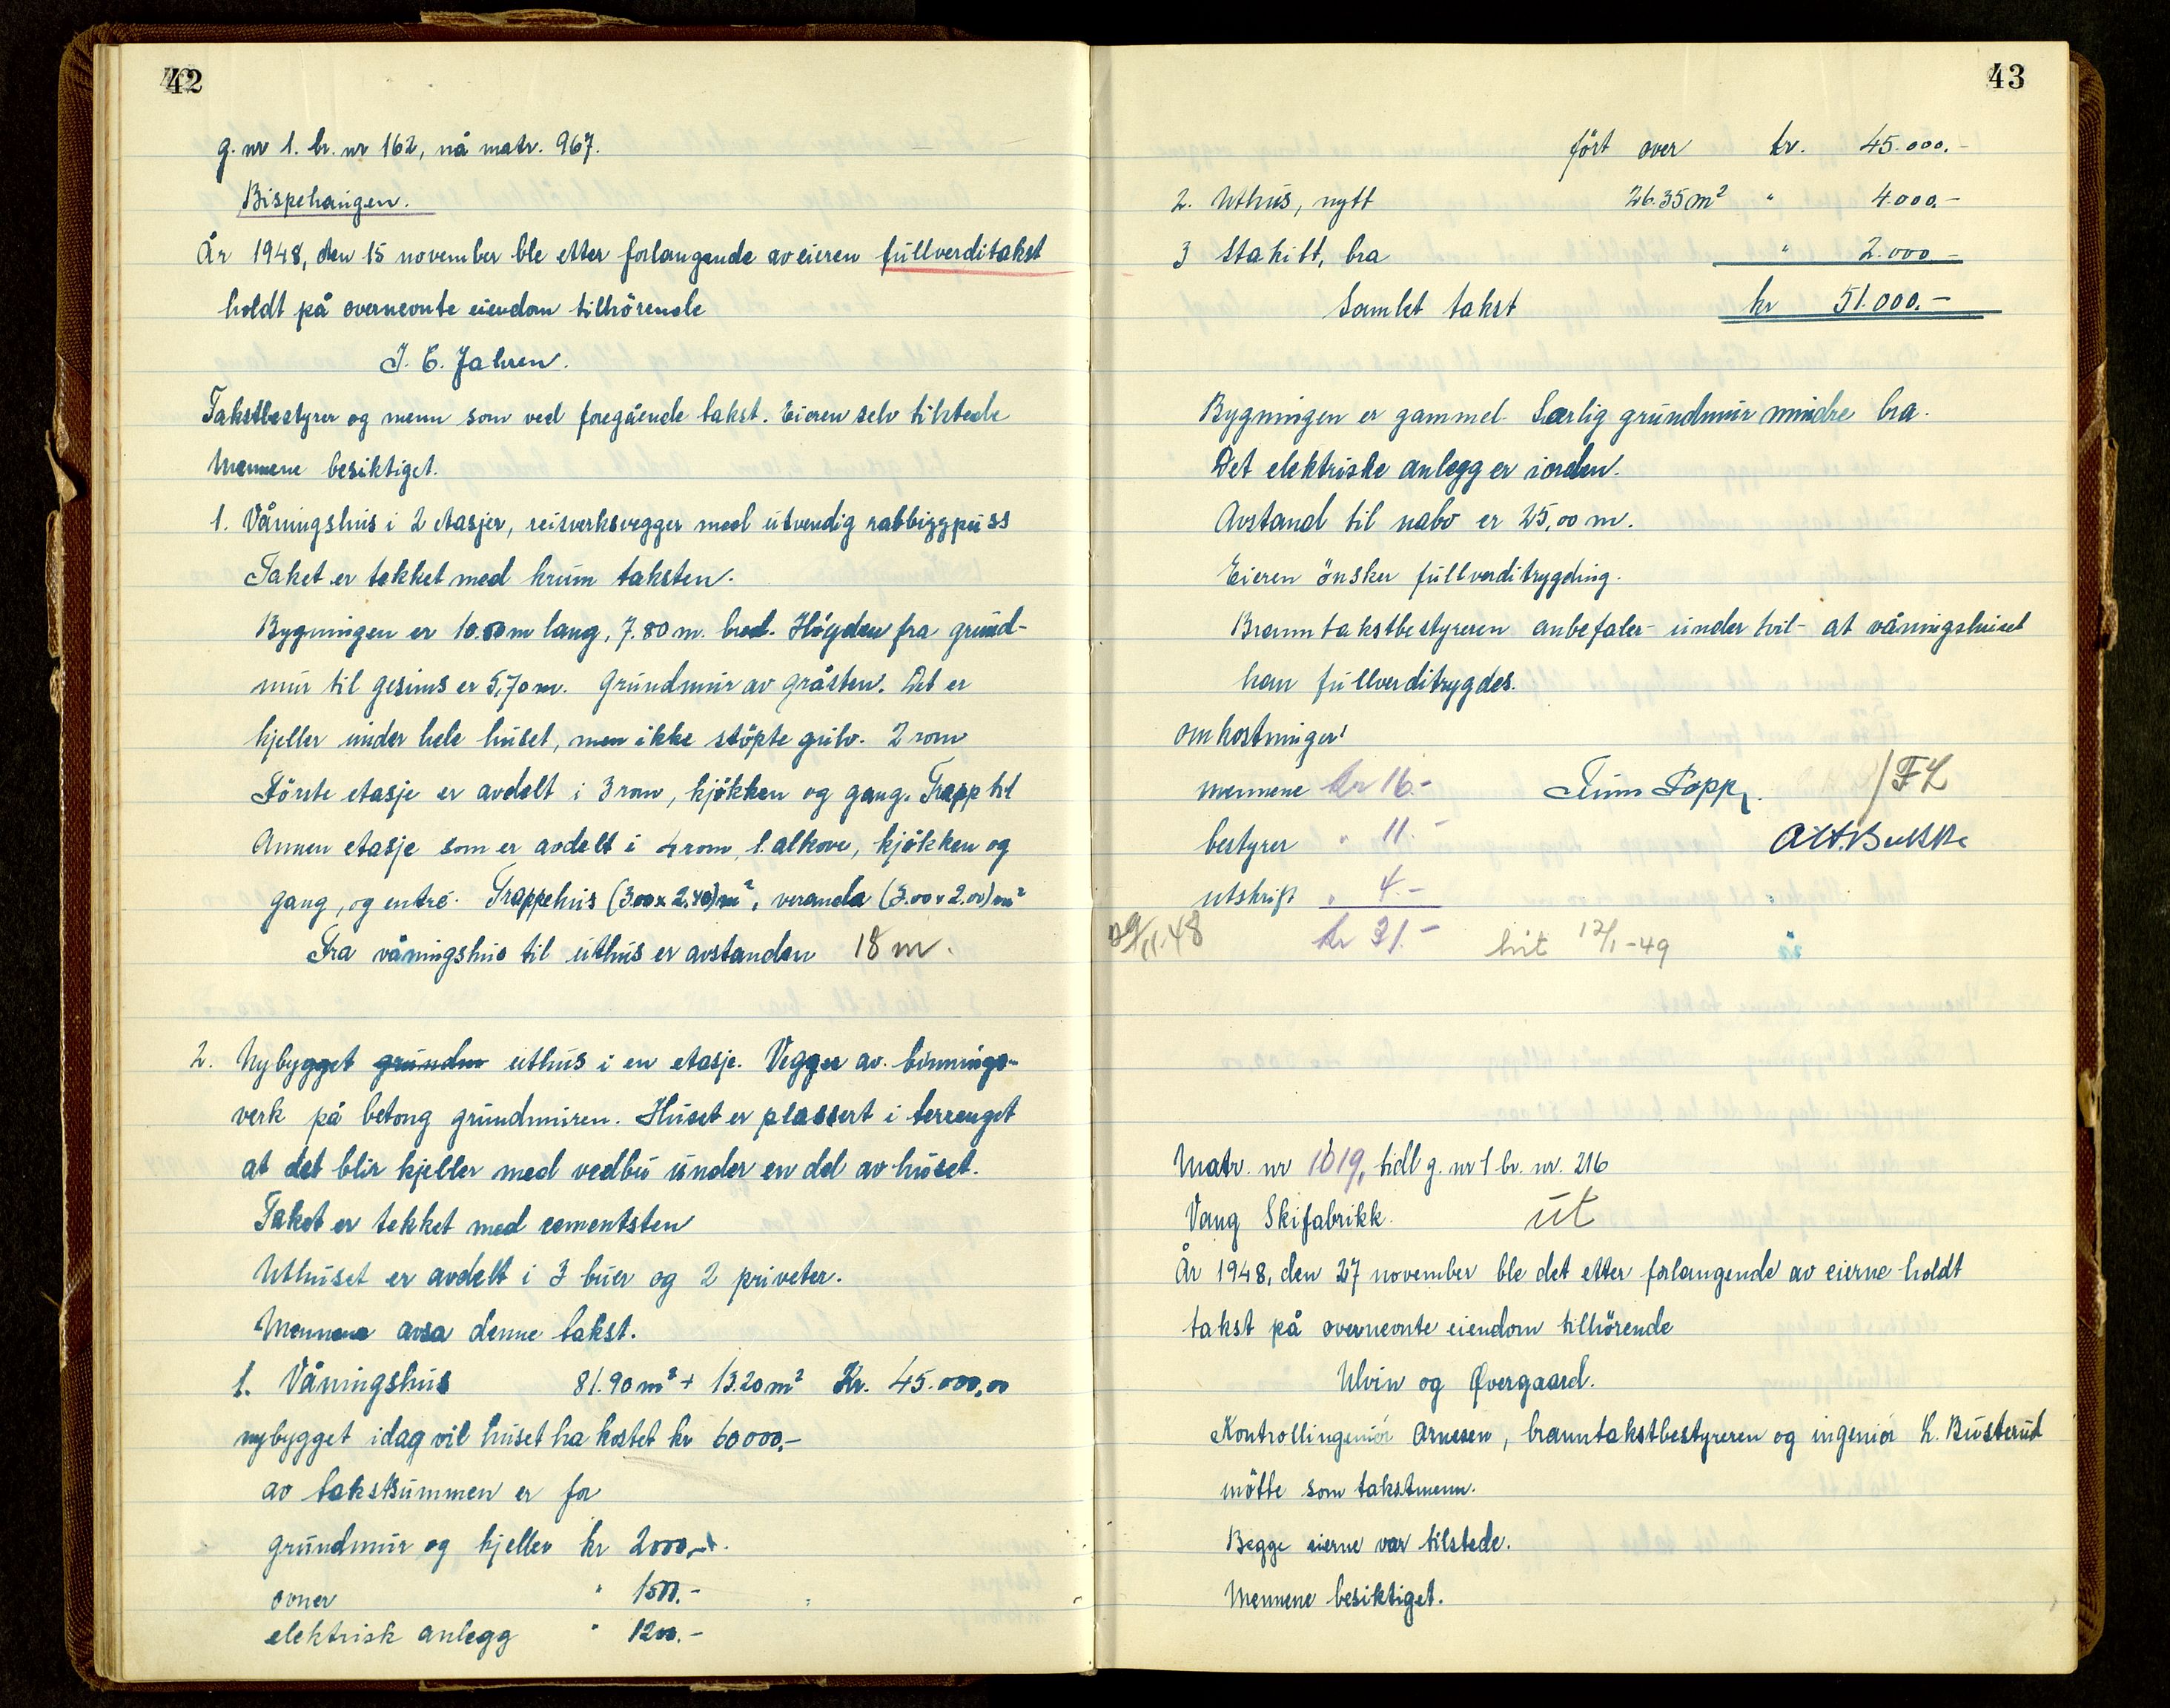 42
g. nr 1. br. nr 162, nå matr. 967.
Bispehaugen.
År 1948, den 15 november ble etter forlangende av eieren fullverditakst
holdt på overnevnte eiendom tilhörende
J. E. Jahren.
Takstbestyrer og menn som ved foregående takst. Eieren selv tilstede
Mennene besiktiget.
1. Våningshus i 2 etasjer, reisverksvegger med utvendig rabbizzpuss
Taket er tekket med krum taksten.
Bygningen er 10.50 m lang, 7.80 m. bred. Höyden fra grund-
mur til gesims er 5,70 m. Grundmur av gråsten. Det er
kjeller under hele huset, men ikke stöpte gulv. 2 rom
Förste etasje er avdelt i 3 rom, kjökken og gang. Trapp til
Annen etasje som er avdelt i 4 rom, 1. alkove, kjökken og
gang, og entré. Trappehus (3.00 x 2.40) m², veranda (3.00 x 2.00) m²
Fra våningshus til uthus er avstanden 18 m.
2. Nybygget grundm uthus i en etasje. Vegger av binnings-
verk på betong grundmuren. Huset er plassert i terrenget
at det blir kjeller med vedbu under en del av huset.
Taket er tekket med cementsten
Uthuset er avdelt i 3 buer og 2 priveter.
Mennene avsa denne takst.
1. Våningshus 81.90 m² + 13.20 m² Kr. 45.000,00
nybygget idag vil huset ha kostet kr 60000,-
av takstsummen er for
grundmur og kjeller kr 2000,-.
ovner " 1500.-
elektrisk anlegg " 1200.-
43
fört over kr. 45.000.-
2. Uthus, nytt 26.35 m² " 4.000.-
3 Stakitt, bra " 2.000 -
Samlet takst kr 51.000.-
Bygningen er gammel. Særlig grundmur mindre bra.
Det elektriske anlegg er iorden.
Avstand til nabo er 25,00 m.
Eieren önsker fullverditrygding.
Branntakstbestyreren anbefaler - under tvil - at våningshuset
kan fullverditrygdes.
Omkostninger:
mennene kr 16.- /FL
bestyrer " 11.-
utskrift " 4.-
29/11.48 kr 31.- 12/1-49
Matr. nr 1019, tidl g. nr 1 br. nr. 216
Vang Skifabrikk. ut
År 1948, den 27 november ble det etter forlangende av eierne holdt
takst på overnevnte eiendom tilhörende
Ulvin og Øvergaard.
Kontrollingeniör Arnesen, branntakstbestyreren og ingeniör L. Busterud
mötte som takstmenn.
Begge eierne var tilstede.
Mennene besiktiget.